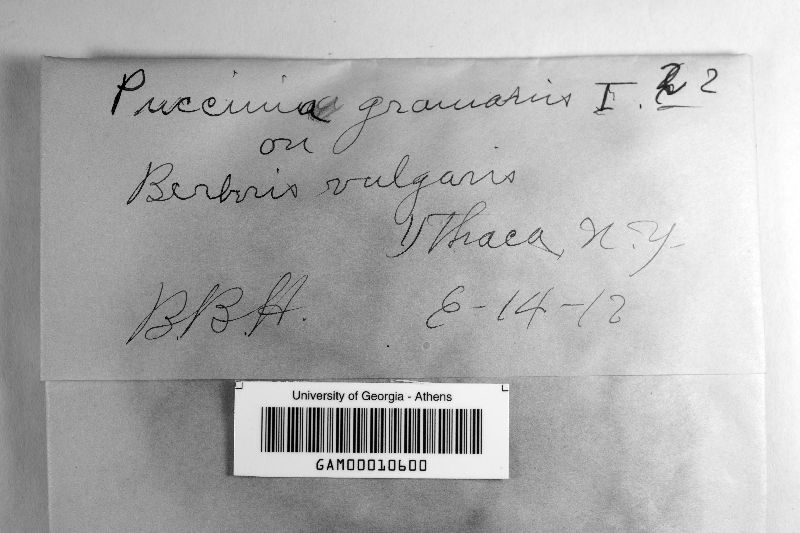 Puccinia graminis I. 2
on
Berberis vulgaris
Ithaca, N.Y.
B.B.H. 6-14-12
University of Georgia - Athens
GAM00010600